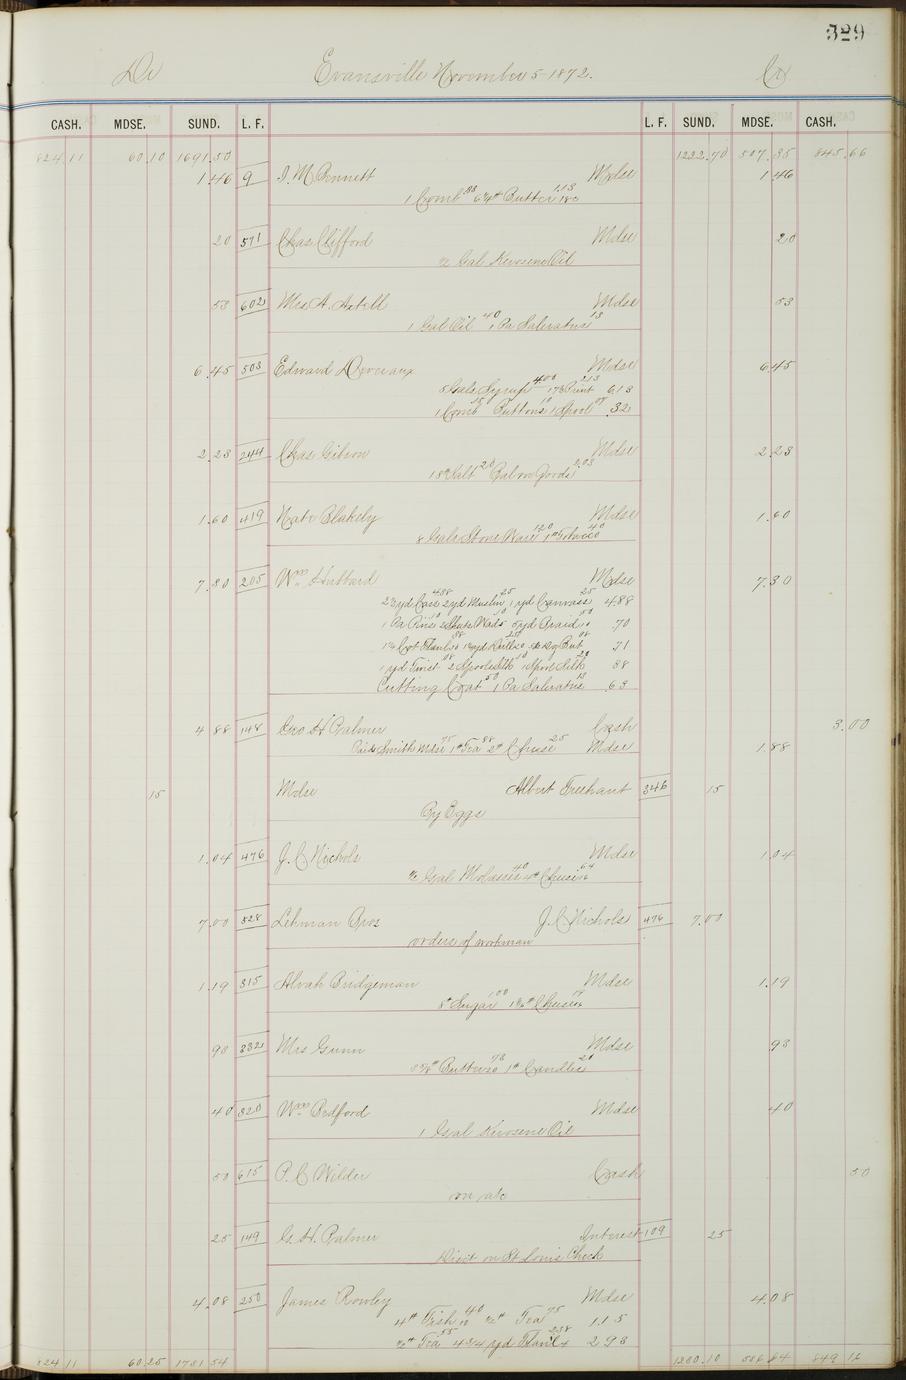 329
Dr Evansville November 5-1872. Cr
CASH. MDSE. SUND. L. F. L. F. SUND. MDSE. CASH.
824.11 60.10 1691.50 1222.70 507.35 845.66
1.46 9 Mdse 1.46
1 Comb Butter
20 571 Chas Clifford Mdse 20
½ Gal Kerosene Oil
53 602 Mrs A. Axtell Mdse 53
1 Gal Oil 40 1 Pa Saleratus 13
6.45 503 Edward Devereaux Mdse 6.45
5 Gals Syrup 400 Print 213 6.13
1 Comb 15 Buttons 10 1 Spool 07 32
2.23 244 Chas Gibson Mdse 2.23
Salt 20 Bal on Goods 2.03
1.60 419 Nate Blakely Mdse 1.60
8 Gals Stone Ware 120 1# Tobacco 40
7.30 205 Wm Hubbard Mdse 7.30
yd Cass 2 yd Muslin 25 1 yd Canvass 25 4.88
1 Pa Pins 10 Wads 5 yd Braid .70
71
1 yd Twist 08 2 Spools Silk 1 Spool Silk 20 38
Cutting Coat 50 1 Pa Saleratus 13 .63
4.88 148 Geo H Palmer Cash 3.00
Paid Smith Mdse 75 1# Tea 88 2# Cheese 25 Mdse 1.88
15 Mdse Albert Treehant 346 15
By Eggs
1.04 476 J. C Nichols Mdse 1.04
½ Gal Molasses 40 4# Cheese 64
7.00 328 Lehman Bros J. C Nichols 476 7.00
orders of workman
1.19 315 Alvah Bridgeman Mdse 1.19
8# Sugar 1.00 Cheese 19
93 332 Mrs Gunn Mdse 93
Butter 73 1# Candles 20
40 320 Wm Bedford Mdse 40
1 Gal Kerosene Oil
50 615 P. C Wilder Cash 50
on a/c
25 149 G. H. Palmer Interest 109 25
Disct on St Louis Check
4.08 250 James Rowley Mdse 4.08
4# Fish 40 ½# Tea 75 1.15
½# Tea 55 yd Flanl 238 2 93
824 11 60.25 1731 54 1230.10 849 16